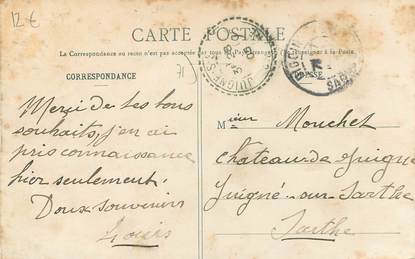 12 €
CARTE POSTALE
La Correspondance au recto n'est pas acceptée par tous les Pays Etrangers. (Se renseigner à la Poste.
CORRESPONDANCE
71
Merci de tes bons
souhaits, j'en ai
pris connaissance
hier seulement.
Doux souvenirs
Louis
JUIGNE
SARTHE
Mᵣ Mouchet
Château de Juigné
Juigné-sur-Sarthe
Sarthe